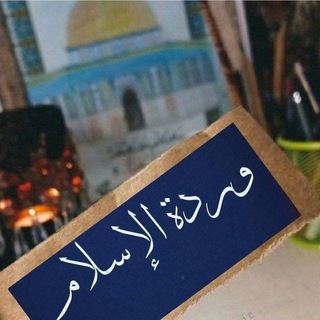 وردة الإسلام